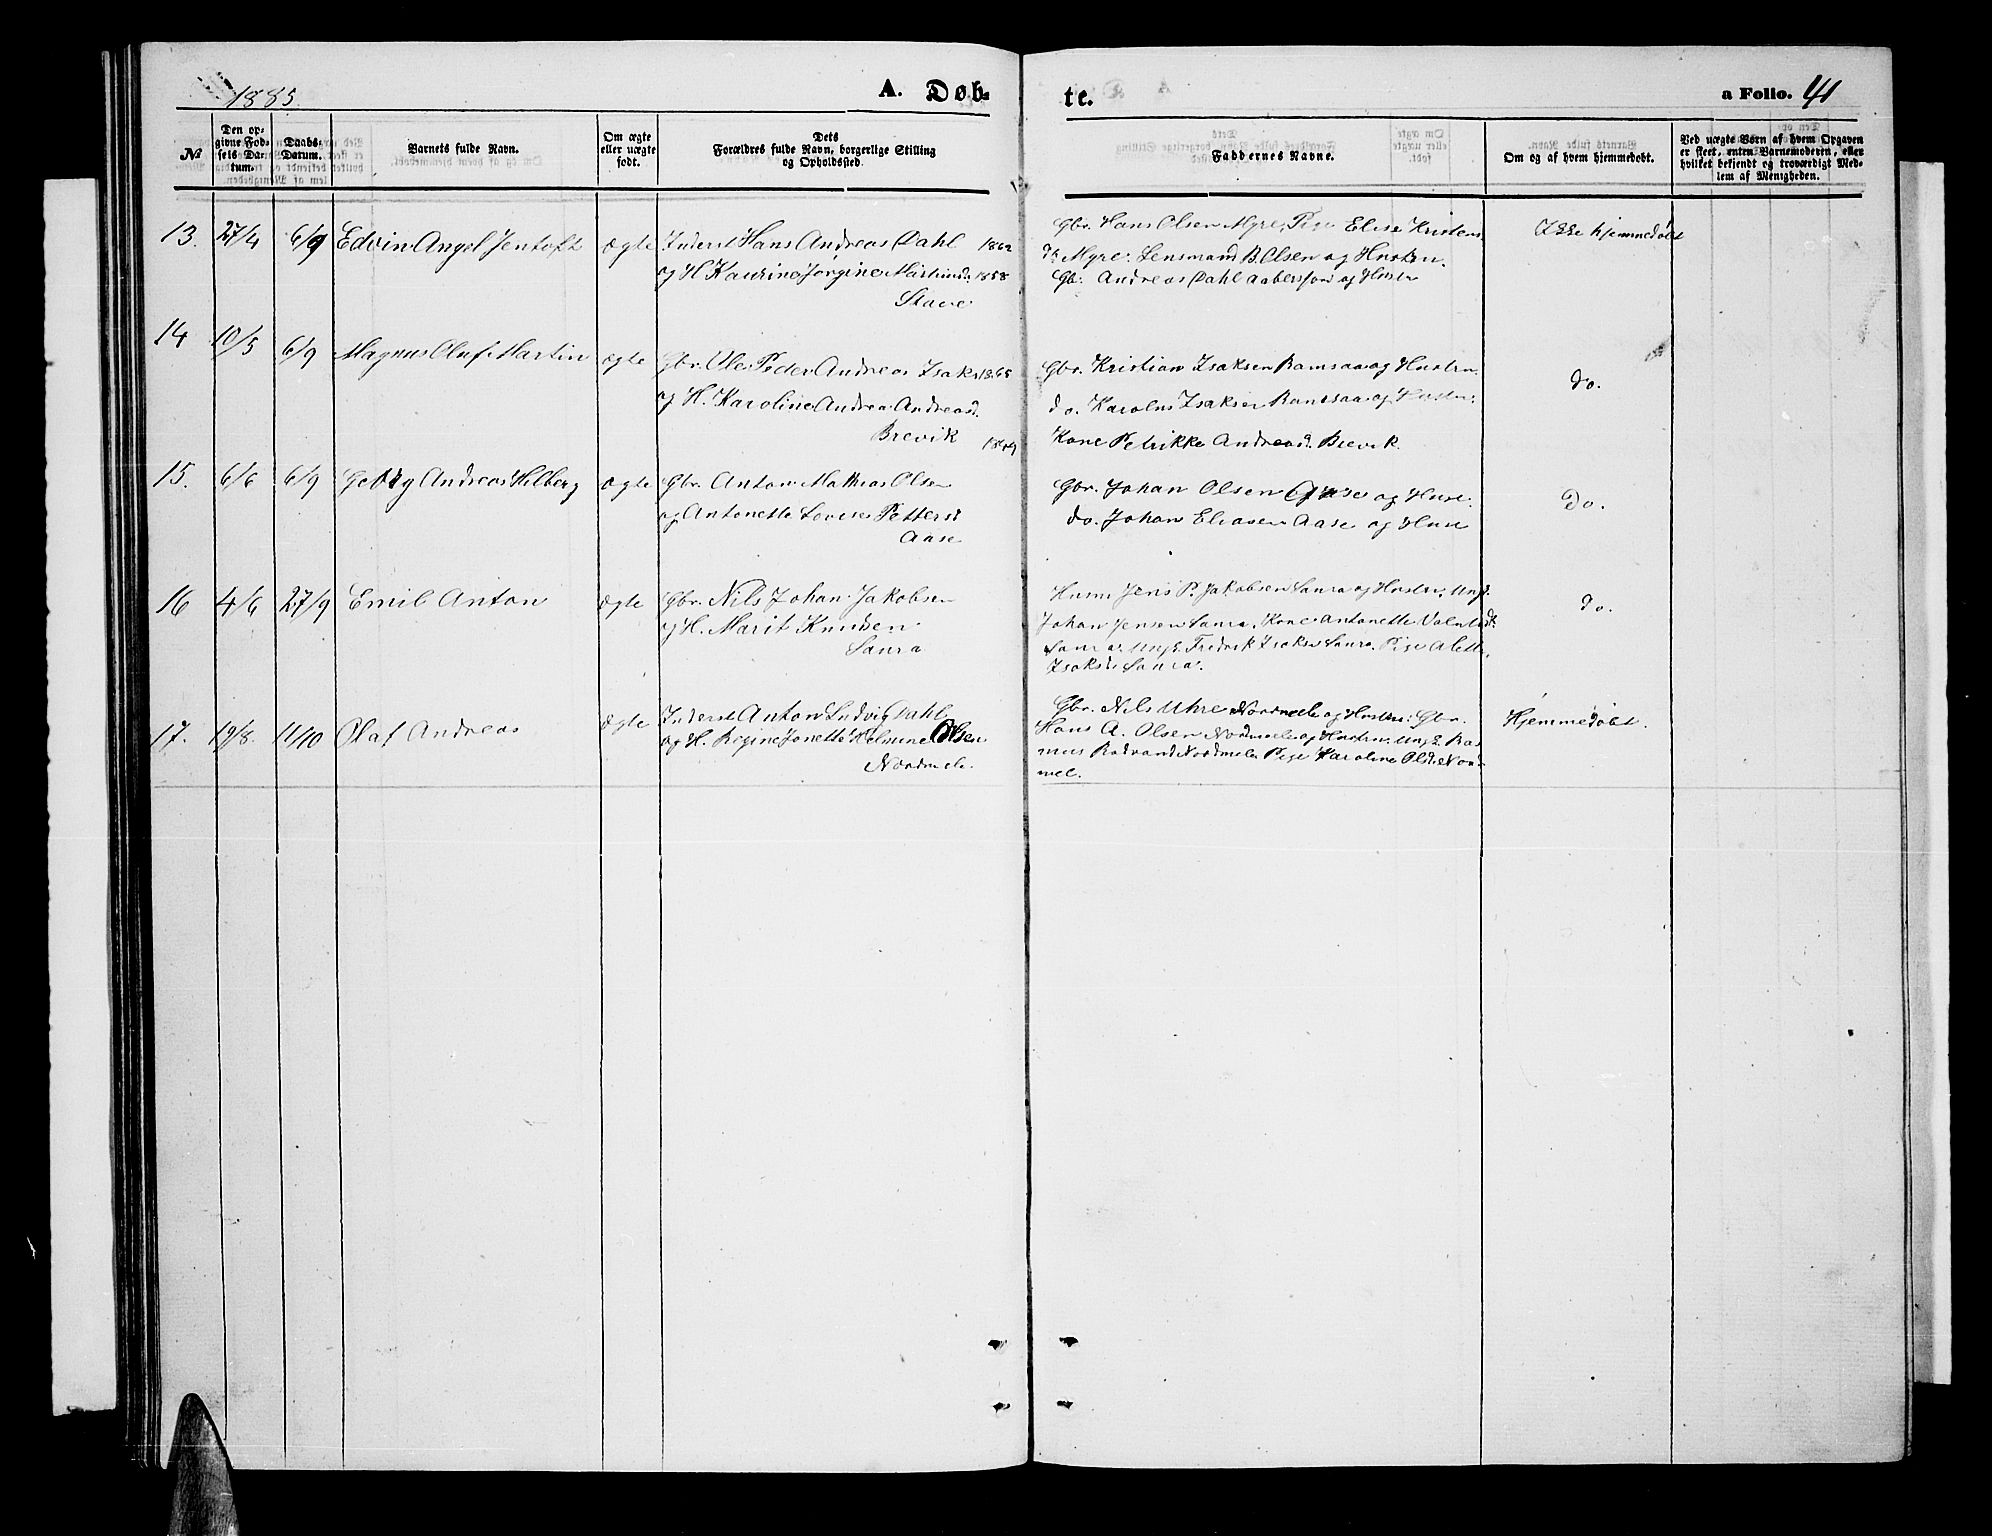 1885.
A. Døb-
te.
a Folio. 41
№
Den op-
givne Fød-
sels Da-
tum.
Daabs-
Datum.
Barnets fulde Navn.
Om ægte
eller uægte
født.
Dets
Forældres fulde Navn, borgerlige Stilling
og Opholdssted.
Faddernes Navne.
Om og af hvem hjemmedøbt.
Ved uægte Børn af hvem Opgaven
er skeet, enten Barnemoderen, eller
hvilket bekjendt og troværdigt Med-
lem af Menigheden.
13. 27/4 6/9 Edvin Angel Jentoft ægte
Inderst Hans Andreas Dahl 1862
og H Kaurine Jørgine Martinsd. 1858
Stave
Gbr. Hans Olsen Myre, Pige Elise Kristens
d. Myre. Lensmand B. Olsen og Hustru.
Gb. Andreas Dahl Aabersjord og Hustr
Ikke hjemmedøbt
14 10/5 6/9 Magnus Oluf Martin ægte
Gbr. Ole Peder Andreas Isaks 1865
og H. Karoline Andrea Andreasd.
Brevik 1849
Gbr. Kristian Isaksen Ramsaa og Hustru
do. Karolus Isaksen Ramsaa og Hustr.
Kone Petrikke Andreasd. Brevik
do.
15. 6/6 6/9 Georg Andreas Hilberg ægte
Gbr. Anton Mathias Olsen
og Antonette Lovise Pettersd
Aase
Gbr. Johan Olsen Aase og Hust.
do. Johan Eliasen Aase og Hust
Do.
16 4/6 27/9 Emil Anton ægte
Gbr. Nils Johan Jakobsen
og H. Marit Knudsen
Saura
Husm Jens P. Jakobsen Saura og Hustru, Ungk.
Johan Jensen Saura, Kone Antonette
Saura, Ungk. Fredrik Isaksen Saura, Pige Alette
Isaksd. Saura.
do.
17. 19/8. 11/10 Olaf Andreas ægte
Inderst Anton Ludvig Dahl
og H. Regine Jonette Helmine Olsen
Nordmele.
Gbr. Nils Uhre Nordmele og Hustru. Gbr.
Hans A. Olsen Nordmele og Hustru. Ungk. Ras
mus Rodvand Nordmele Pige Karoline Olsd. Nord-
mel.
Hjemmedøbt.